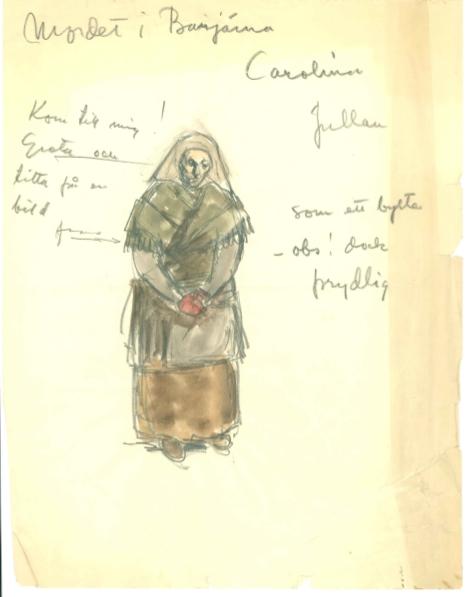 Mordet i Barjärna
Carolina
Jullan
Kom till mig!
Greta och
titta på en
bild
som ett bylte
- obs! dock
prydlig